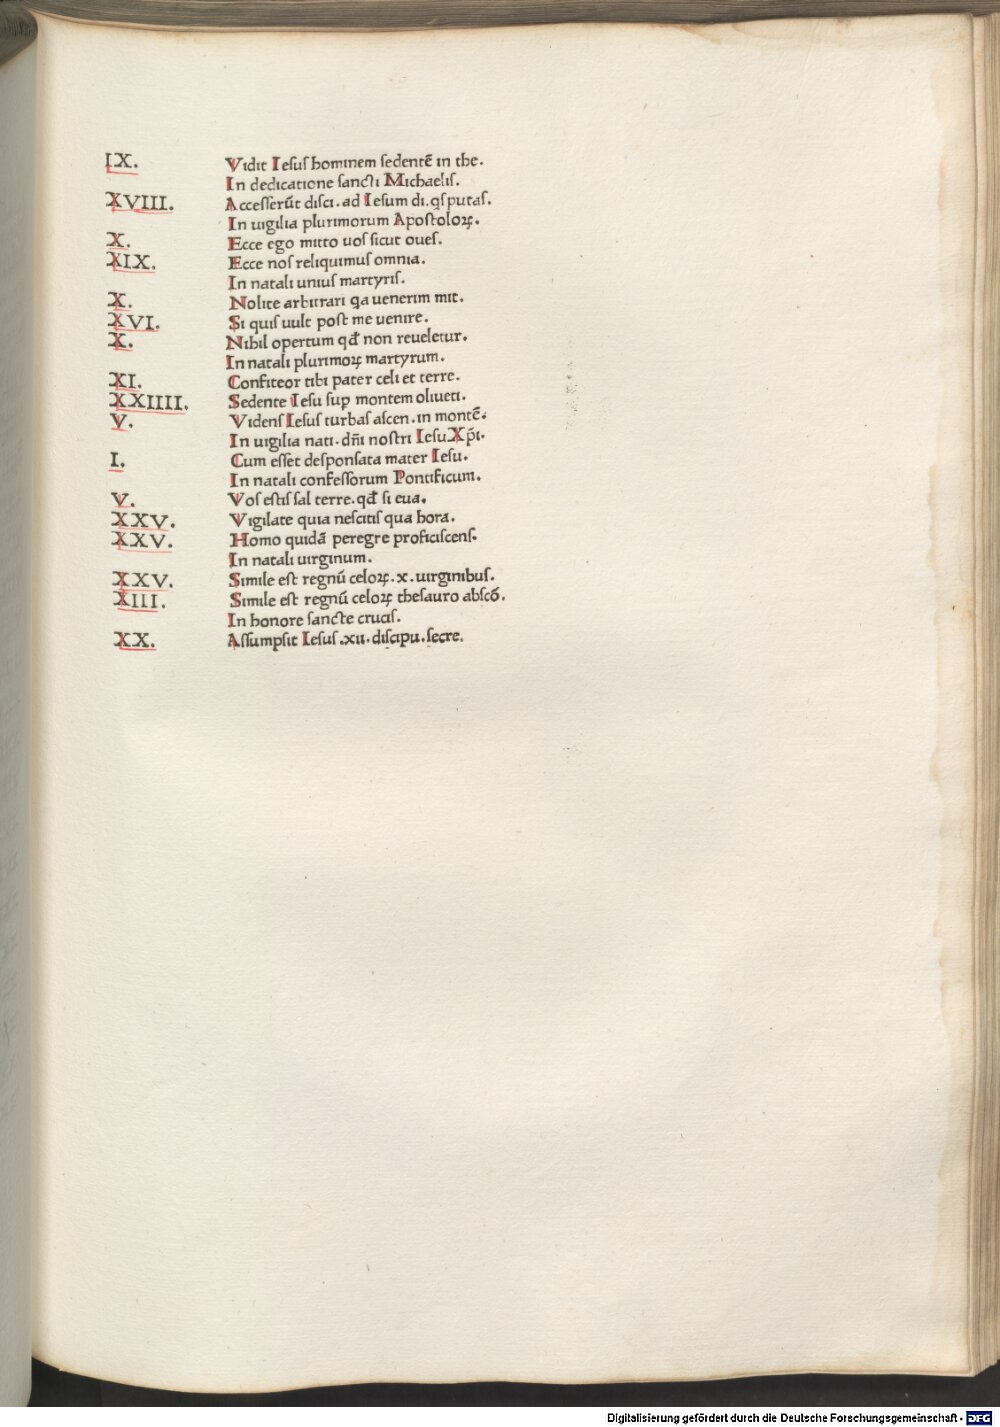 IX. Vidit Iesus hominem sedentē in the.
In dedicatione sancti Michaelis.
XVIII. Accesserūt disci. ad Iesum di. qs putas.
In uigilia plurimorum Apostoloꝝ.
X. Ecce ego mitto uos sicut oues.
XIX. Ecce nos reliquimus omnia.
In natali unius martyris.
X. Nolite arbitrari qa uenerim mit.
XVI. Si quis uult post me uenire.
X. Nihil opertum qđ non reueletur.
In natali plurimoꝝ martyrum.
XI. Confiteor tibi pater celi et terre.
XXIIII. Sedente Iesu suꝑ montem oliueti.
V. Videns Iesus turbas ascen. in montē.
In uigilia nati. dñi nostri Iesu Xp̄i.
I. Cum esset desponsata mater Iesu.
In natali confessorum Pontificum.
V. Vos estis sal terre. qđ si eua.
XXV. Vigilate quia nescitis qua hora.
XXV. Homo quidā peregre proficiscens.
In natali uirginum.
XXV. Simile est regnū celoꝝ. x. uirginibus.
XIII. Simile est regnū celoꝝ thesauro abscō.
In honore sancte crucis.
XX. Assumpsit Iesus .xii. discipu. secre.
Digitalisierung gefördert durch die Deutsche Forschungsgemeinschaft - DFG